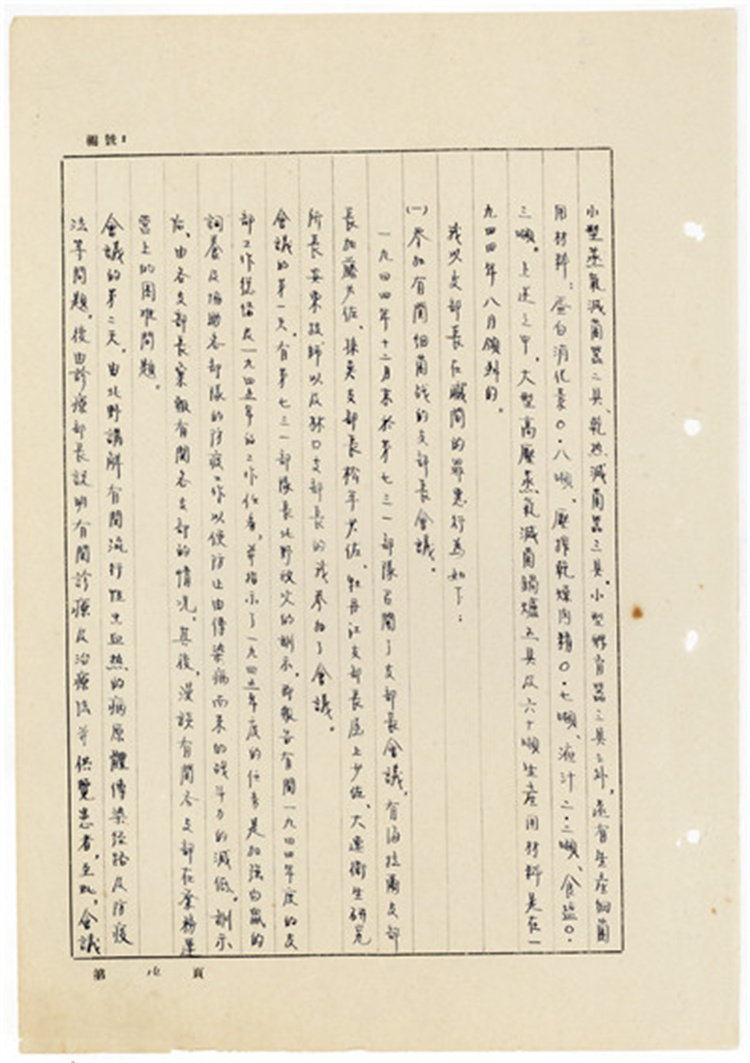 編號:
小型蒸氣滅菌器二具、乾热滅菌器三具、小型孵育器三具之外，還有生產細菌
用材料：蛋白消化素0.八噸、壓搾乾燥肉精0.七噸、液汁二.二噸、食盐0.
三噸。上述之中，大型高壓蒸氣滅菌鍋爐五具及六十噸生產用材料是在一
九四四年八月領到的。
我以支部長在職間的罪惡行為如下：
(一)参加有関细菌战的支部長会議。
一九四四年十二月末於第七三一部隊召開了支部長会議，有海拉爾支部
長加藤少佐、孫吳支部長松年少佐、牡丹江支部長尾上少佐、大連衛生研究
所長安東技師以及林口支部長的我参加了会議。
会議的第一天，有第七三一部隊長北野政次的訓示，即報告有関一九四四年度的支
部工作總结及一九四五年的工作任务，並指示了一九四五年度的任务是加强白鼠的
飼养及協助各部隊的防疫工作以便防止由傳染病而來的战斗力的減低。訓示
后，由各支部長彙報有関各支部的情况，其後，漫談有関各支部在業務運
营上的困难問題。
会議的第二天，由北野講解有関流行性出血热的病原體傳染经路及防疫
法等問題。後由診療部長説明有関診療及治療法並供覽患者。至此，会議
第 頁